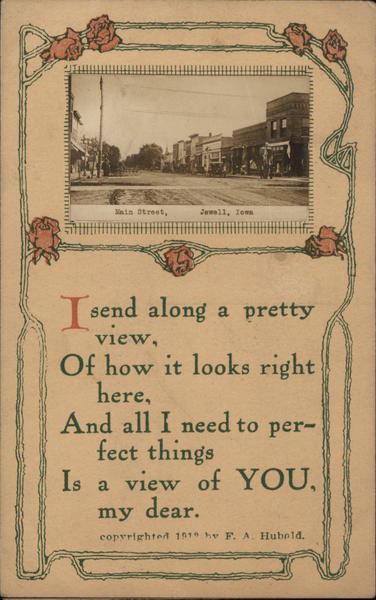 Main Street, Jewell, Iowa
I send along a pretty
view,
Of how it looks right
here,
And all I need to per-
fect things
Is a view of YOU,
my dear.
copyrighted by F. A. Hubold.